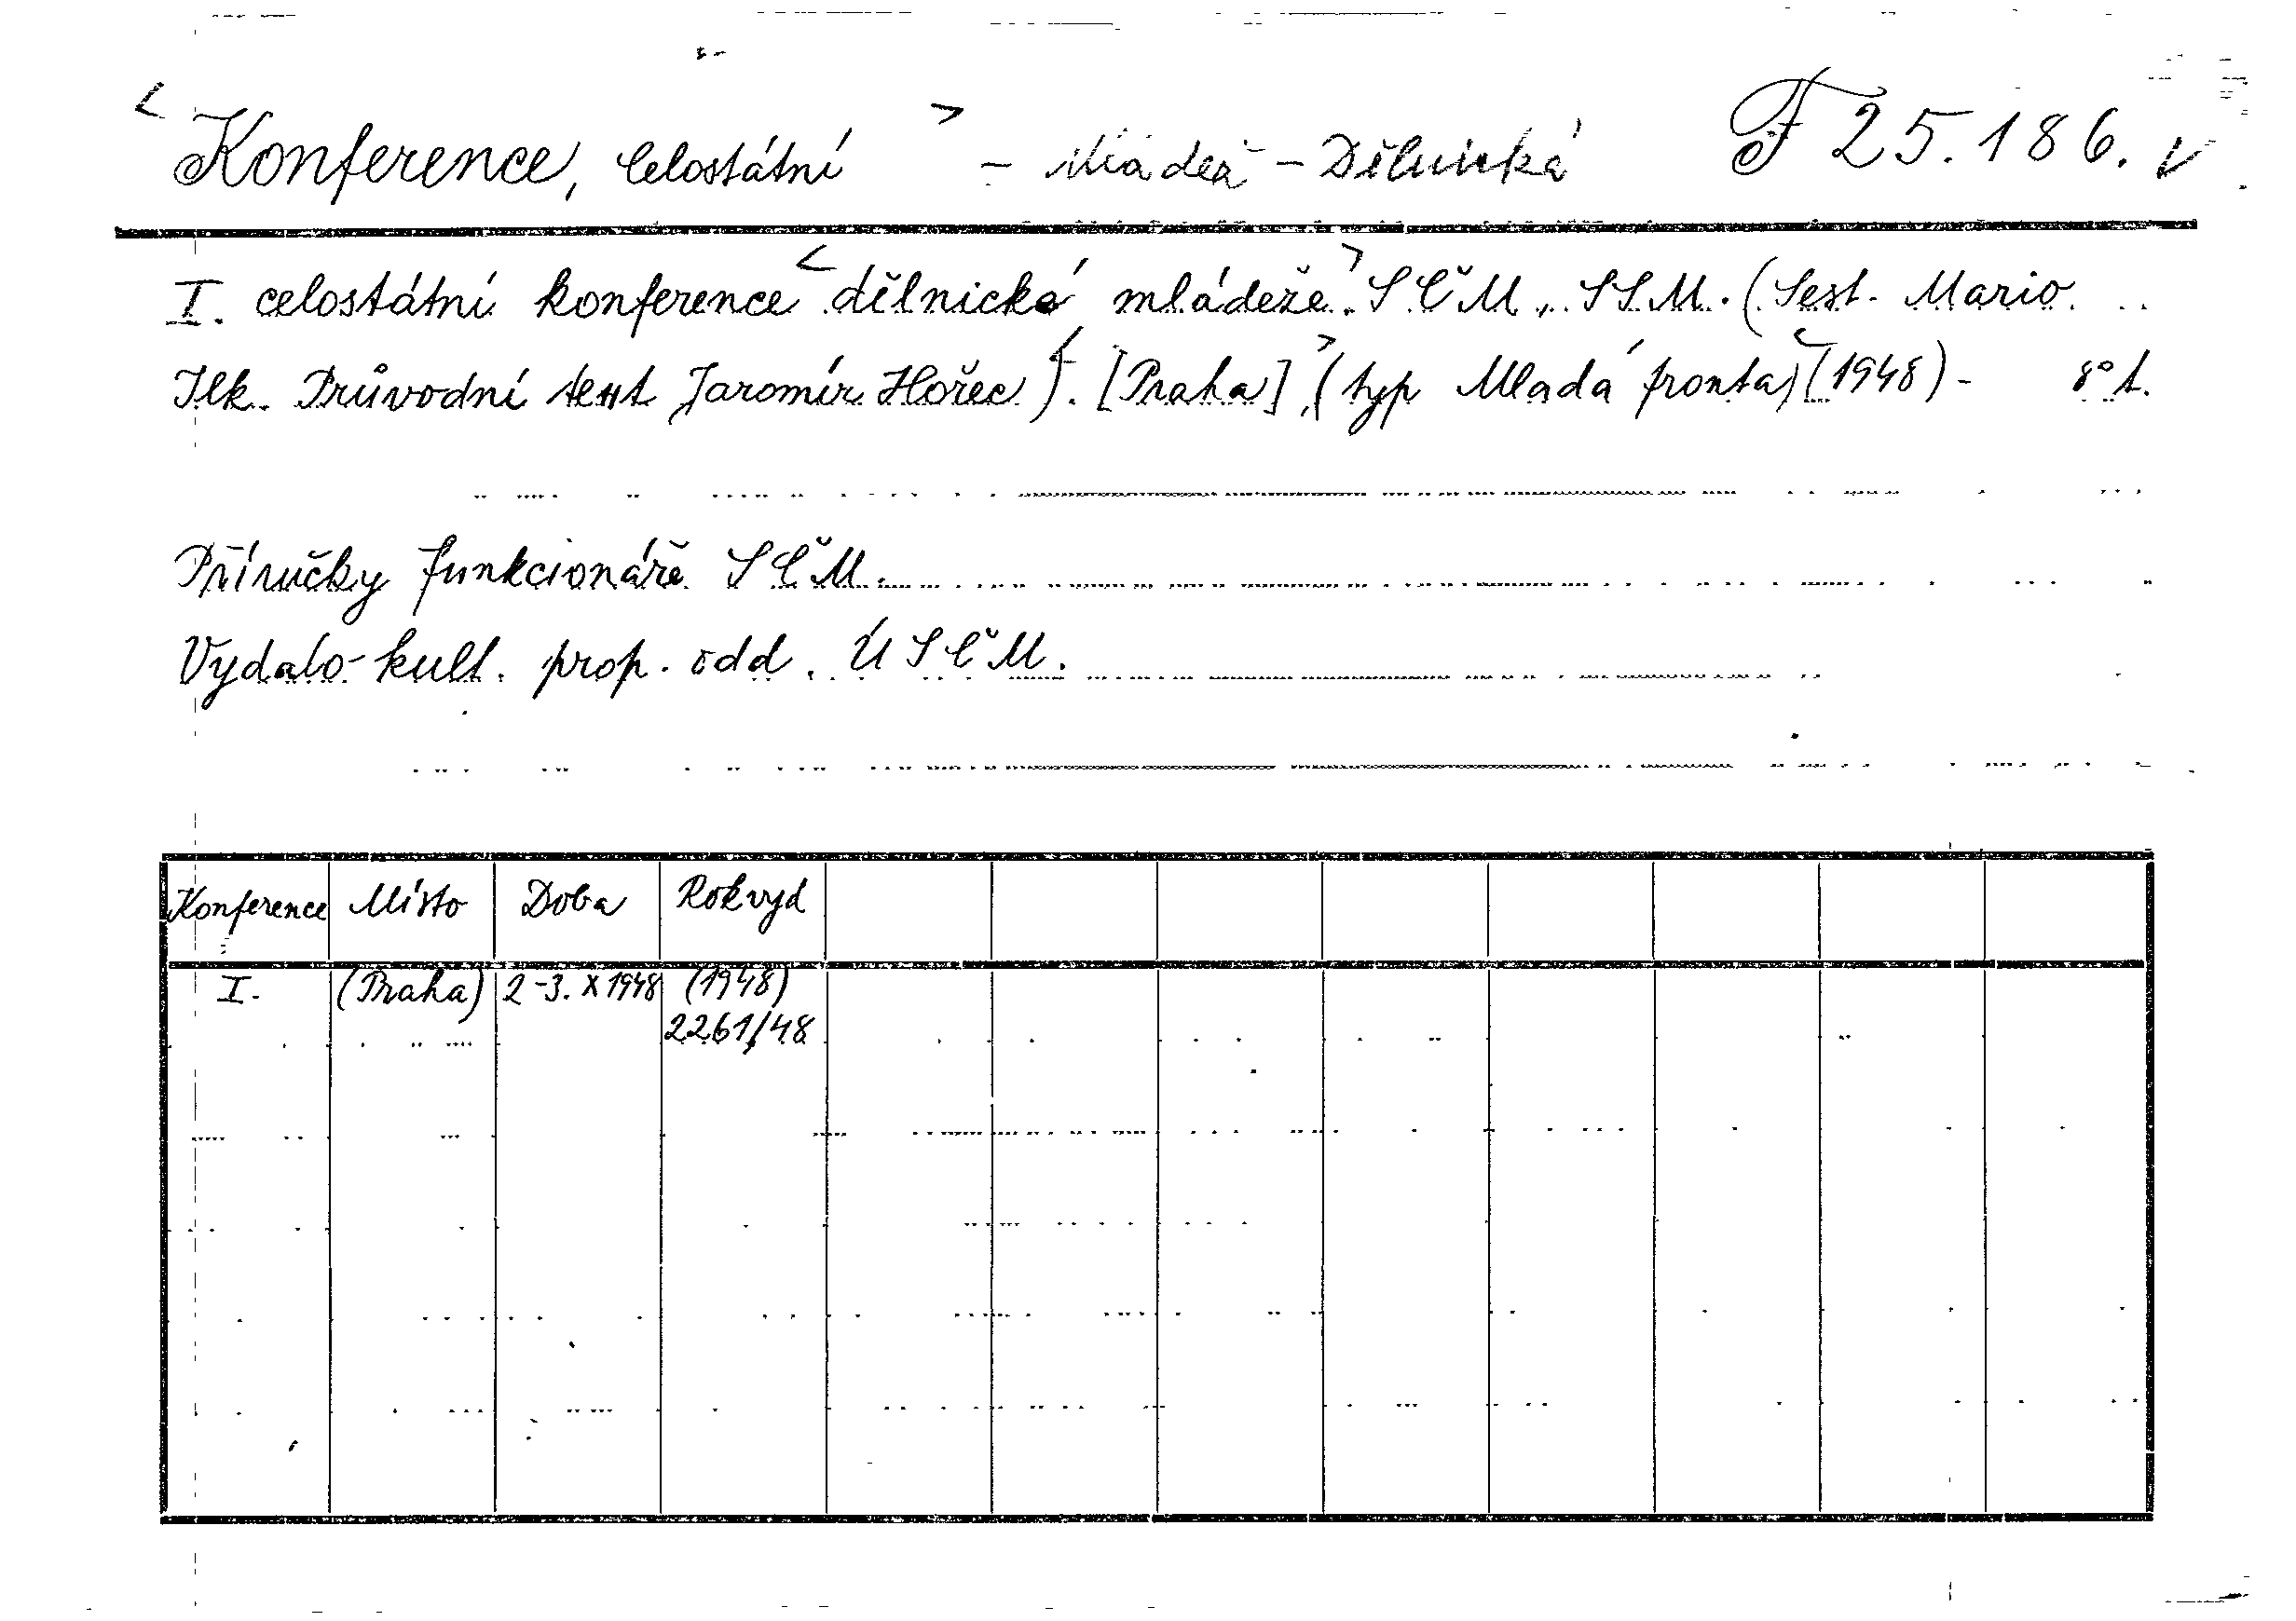 < Konference, celostátní > - Mládež - Dělnická F 25.186. v
I. celostátní konference < dělnické mládeže > SČM, SSM. (Sest. Mario
Ilk. Průvodní text Jaromír Hořec). [Praha], (typ Mladá fronta) (1948) - 8° t.
Příručky funkcionáře SČM.
Vydalo kult. prop. odd. ÚSČM.
Konference Místo Doba Rok vyd
I. (Praha) 2-3. X 1948 (1948)
2261/48